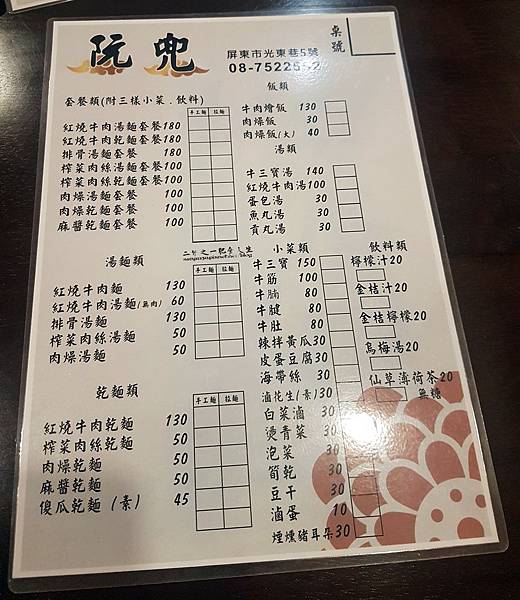 阮兜
屏東市光東巷5號
桌號
套餐類(附三樣小菜.飲料)
手工麵 拉麵
紅燒牛肉湯麵套餐180
紅燒牛肉乾麵套餐180
排骨湯麵套餐 180
榨菜肉絲湯麵套餐100
榨菜肉絲乾麵套餐100
肉燥湯麵套餐 100
肉燥乾麵套餐 100
麻醬乾麵套餐 100
湯麵類
手工麵 拉麵
紅燒牛肉麵 130
紅燒牛肉湯麵(無肉) 60
排骨湯麵 130
榨菜肉絲湯麵 50
肉燥湯麵 50
乾麵類
手工麵 拉麵
紅燒牛肉乾麵 130
榨菜肉絲乾麵 50
肉燥乾麵 50
麻醬乾麵 50
傻瓜乾麵(素) 45
飯類
牛肉燴飯 130
肉燥飯 30
肉燥飯(大) 40
湯類
牛三寶湯 140
紅燒牛肉湯100
蛋包湯 30
魚丸湯 30
貢丸湯 30
小菜類
牛三寶 150
牛筋 100
牛腩 80
牛腱 80
牛肚 80
辣拌黃瓜30
皮蛋豆腐30
海帶絲 30
滷花生(素)30
白菜滷 30
燙青菜 30
泡菜 30
筍乾 30
豆干 30
滷蛋 10
煙燻豬耳朵30
飲料類
檸檬汁20
金桔汁20
金桔檸檬20
烏梅湯20
仙草薄荷茶20
無糖